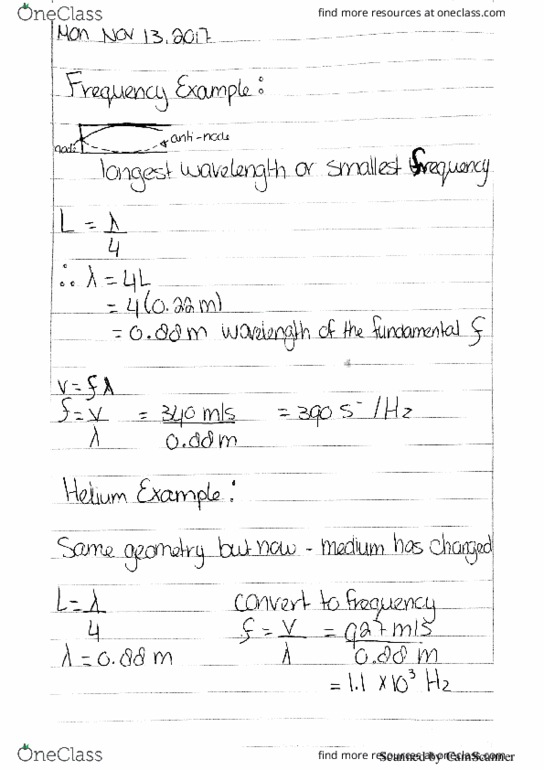 OneClass
find more resources at oneclass.com
Mon Nov 13, 2017
Frequency Example:
node
anti-node
longest wavelength or smallest frequency
L = λ/4
∴ λ = 4L
= 4(0.22m)
= 0.88m wavelength of the fundamental f
v = fλ
f = v/λ = 340 m/s / 0.88m = 390 s⁻ /Hz
Helium Example:
Same geometry but now - medium has changed
L = λ/4
convert to frequency
λ = 0.88 m
f = v/λ = 927 m/s / 0.88 m
= 1.1 x10³ Hz
OneClass
find more resources at oneclass.com
Scanned by CamScanner